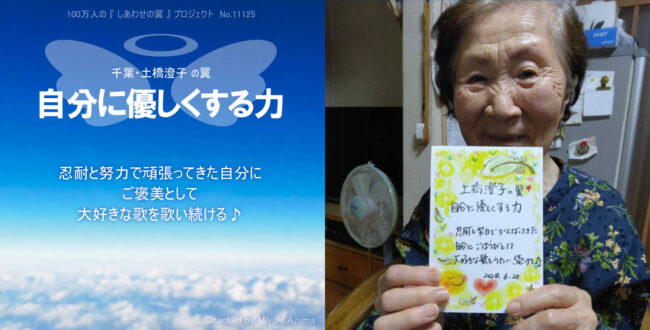 100万人の『 しあわせの翼 』プロジェクト No.11125
千葉・土橋澄子 の翼
自分に優しくする力
忍耐と努力で頑張ってきた自分に
ご褒美として
大好きな歌を歌い続ける♪
Coached by Miyuki Azuma
土橋澄子の翼
自分に優しくする力
忍耐と努力でがんばってきた
自分にごほうびとして
大好きな歌をうたい続ける♪
2024.6.20